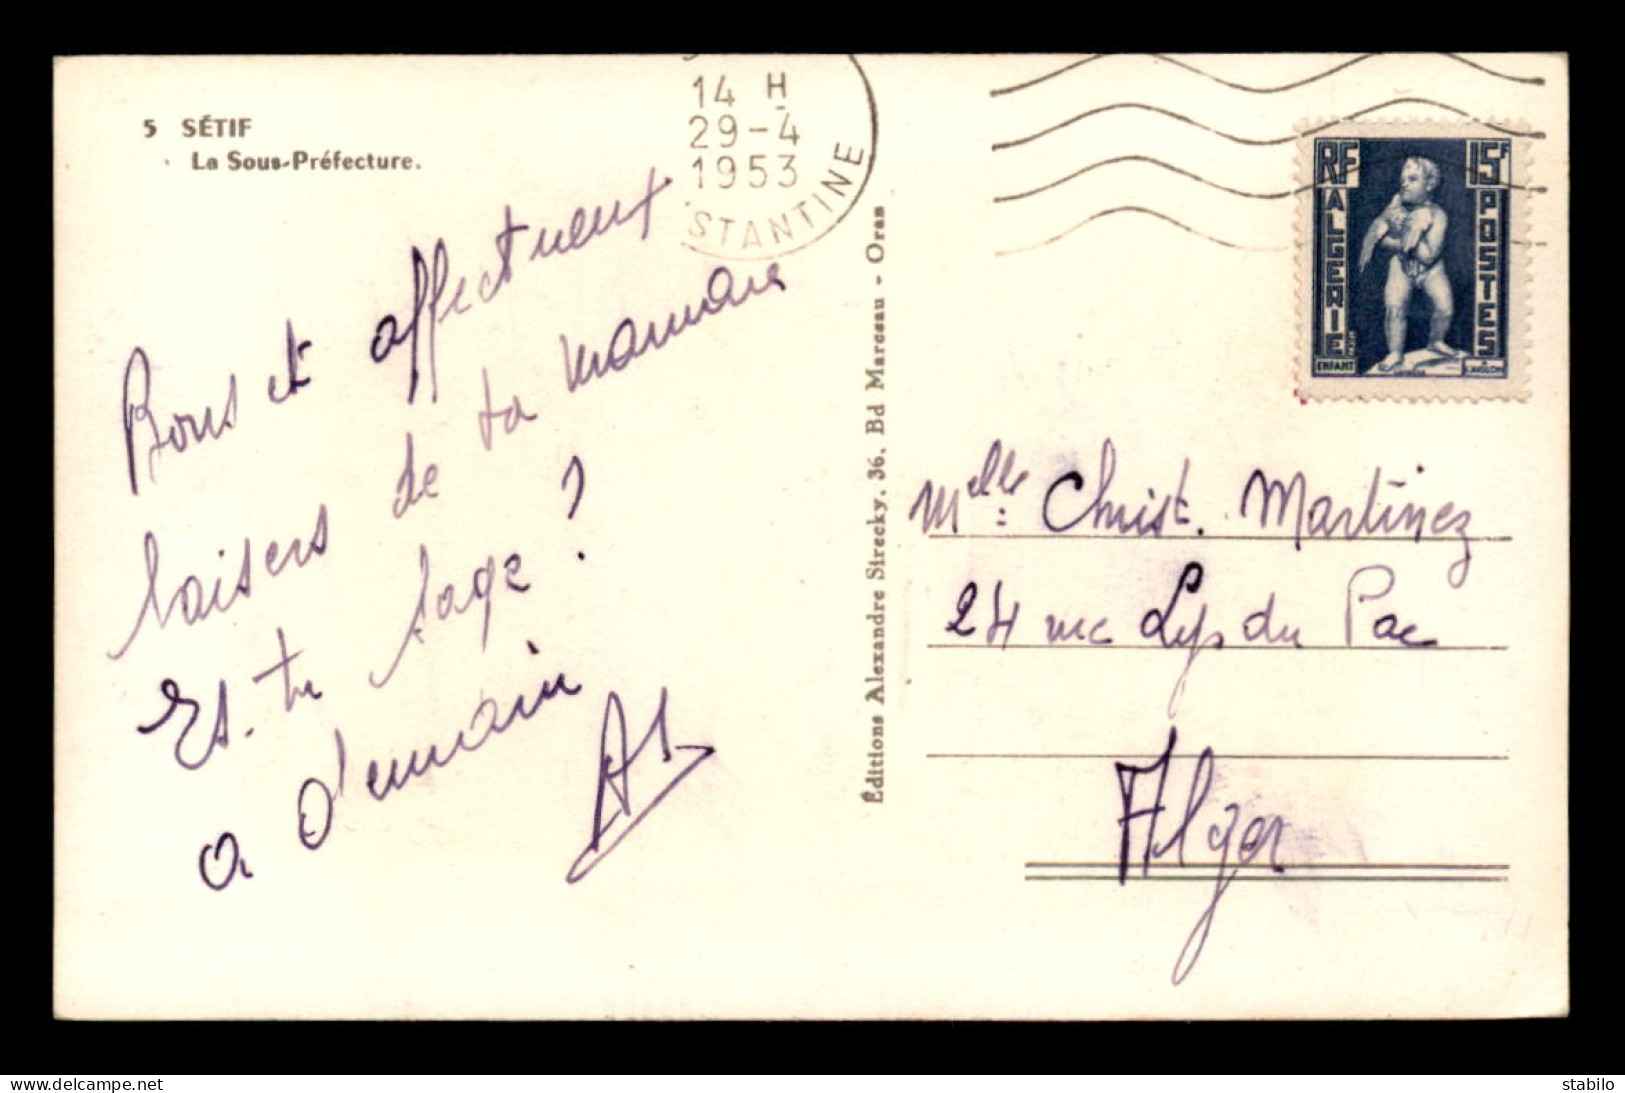 5 SÉTIF
La Sous-Préfecture.
14 H
29-4
1953
STANTINE
RF
15F
ALGERIE
POSTES
ENFANT
L'AIGLON
Bons et affectueux
baisers de ta maman
Es-tu sage ?
a demain
Éditions Alexandre Sirecky, 36, Bd Marceau - Oran
Melle: Christ. Martinez
24 rue Lys du Pac
Alger
delcampe.net
stabilo